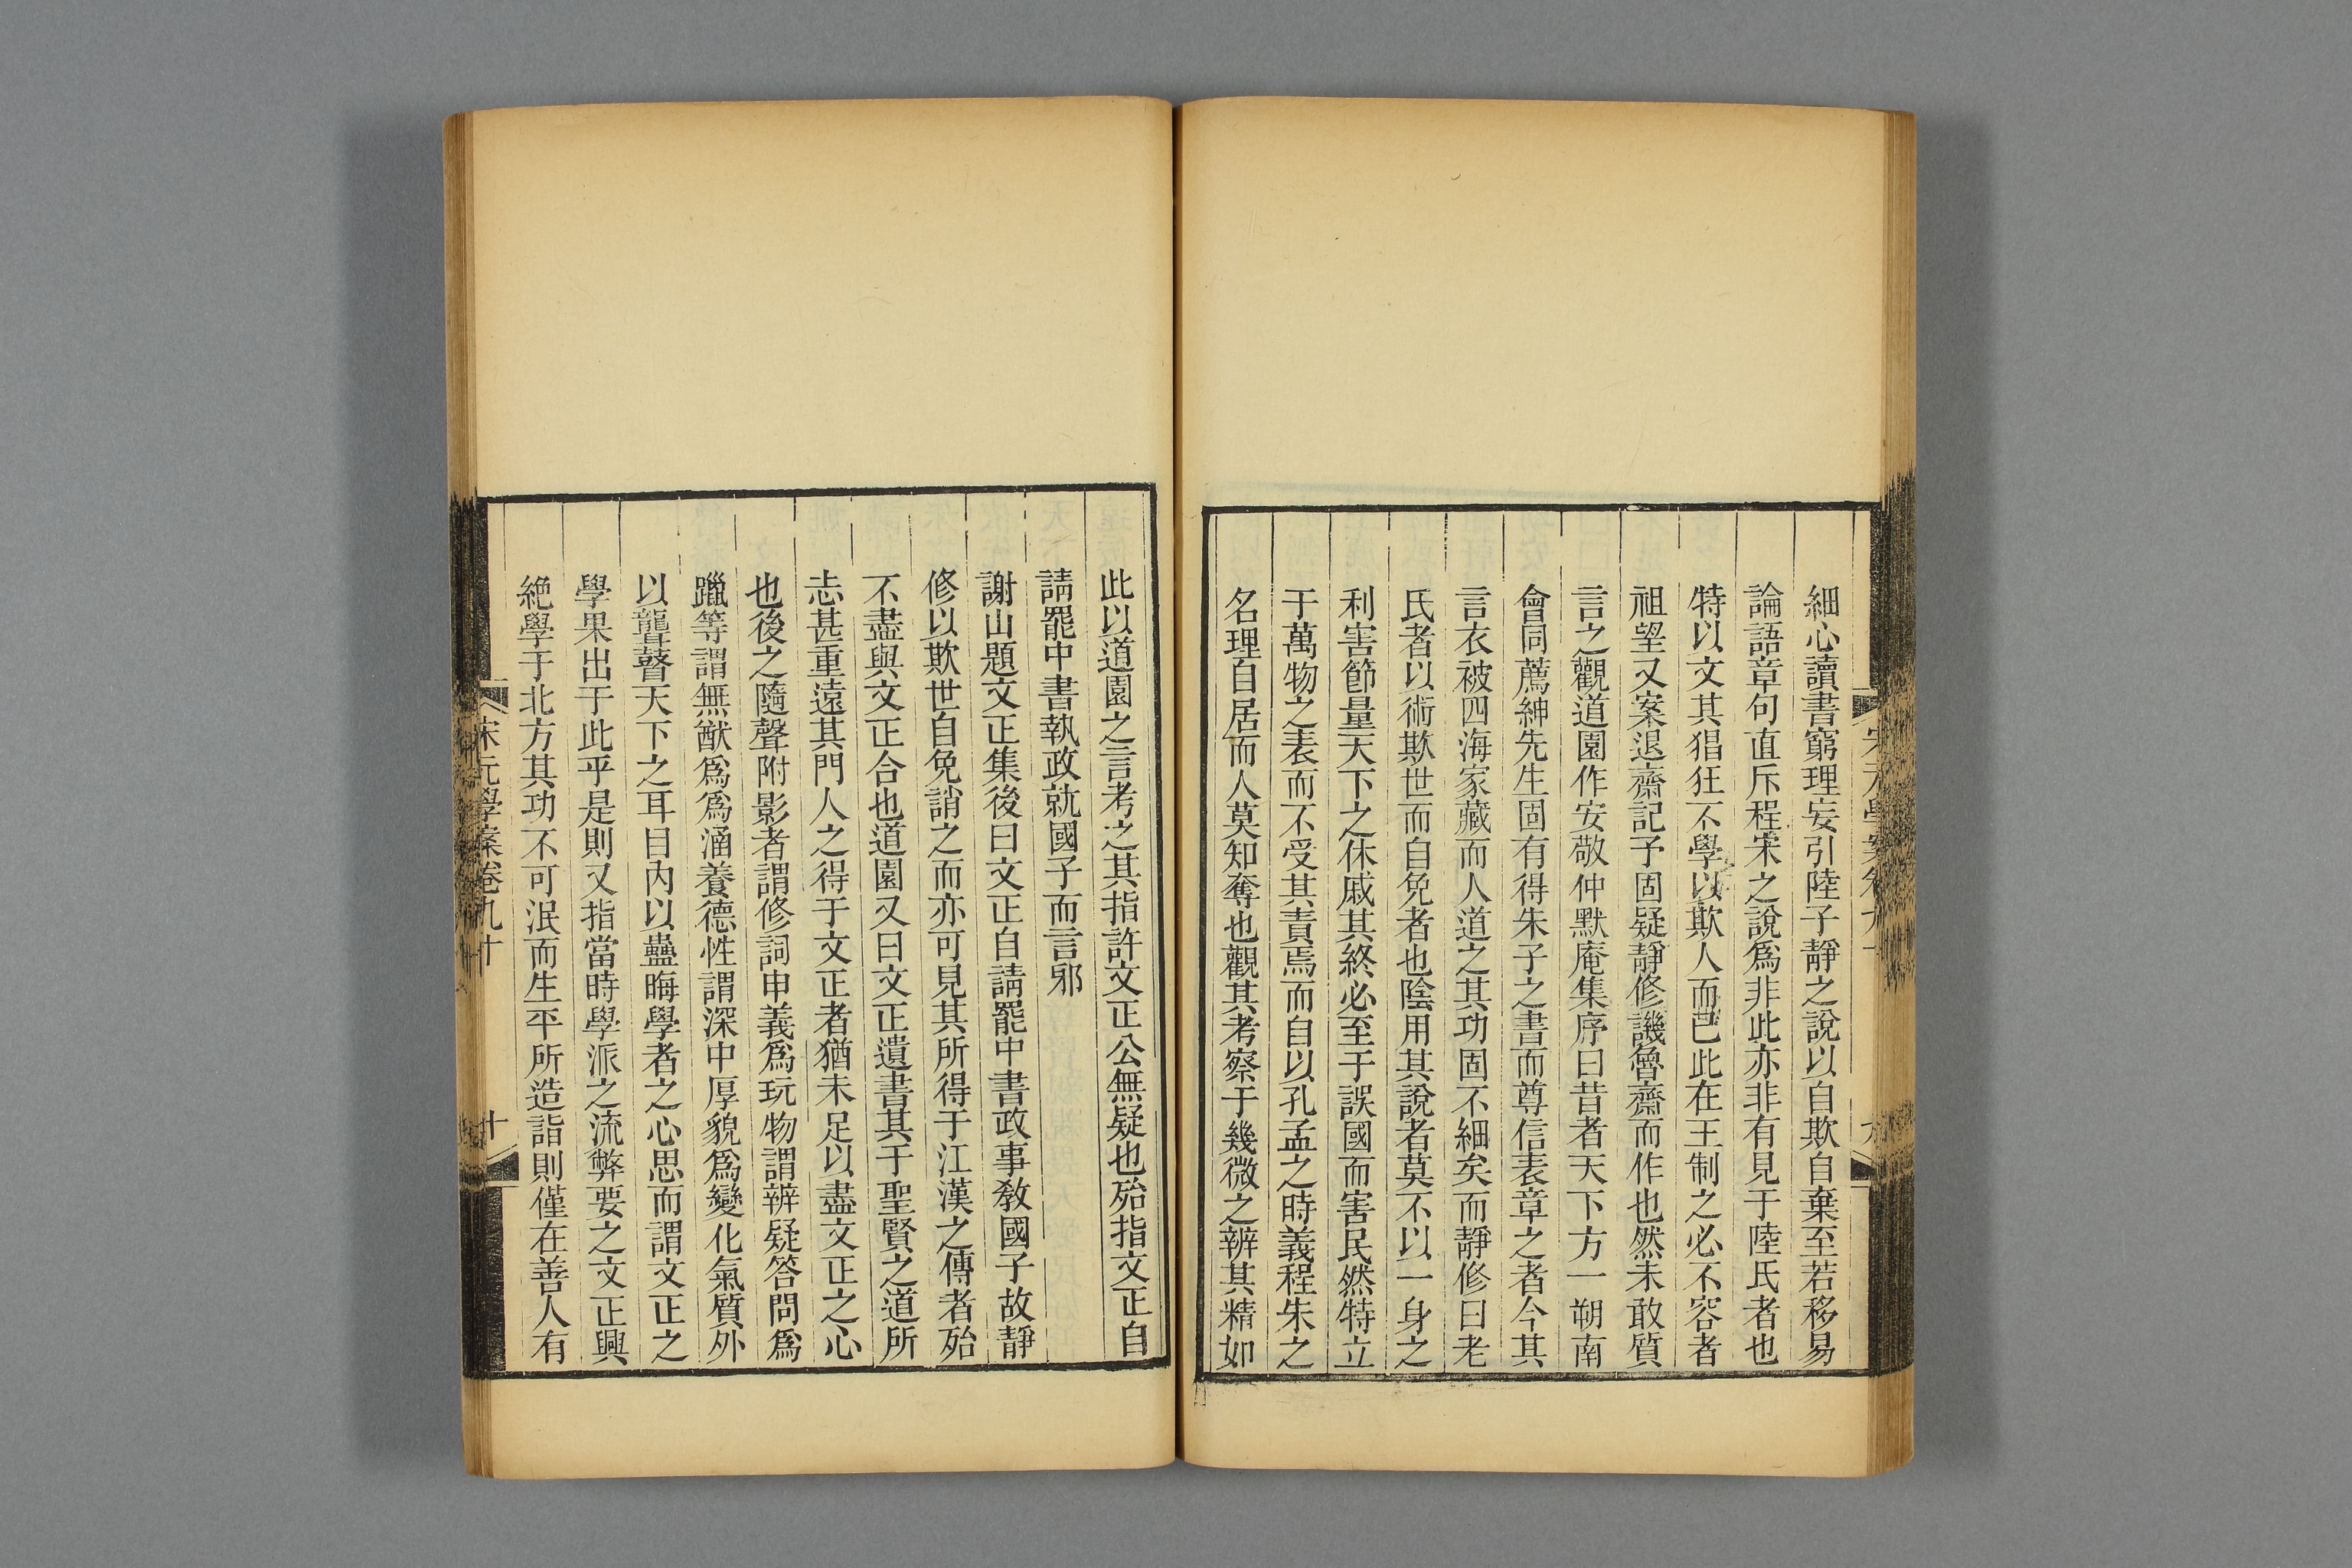 細心讀書窮理妄引陸子靜之說以自欺自棄至若移易
論語章句直斥程宋之說爲非此亦非有見于陸氏者也
特以文其猖狂不學以欺人而已此在王制之必不容者
祖望又案退齋記子固疑靜修譏魯齋而作也然未敢質
言之觀道園作安敬仲默庵集序曰昔者天下方一朔南
會同薦紳先生固有得朱子之書而尊信表章之者今其
言衣被四海家藏而人道之其功固不細矣而靜修曰老
氏者以術欺世而自免者也陰用其說者莫不以一身之
利害節量天下之休戚其終必至于誤國而害民然特立
于萬物之表而不受其責焉而自以孔孟之時義程朱之
名理自居而人莫知奪也觀其考察于幾微之辨其精如
此以道園之言考之其指許文正公無疑也殆指文正自
請罷中書執政就國子而言邪
謝山題文正集後曰文正自請罷中書政事敎國子故靜
修以欺世自免誚之而亦可見其所得于江漢之傳者殆
不盡與文正合也道園又曰文正遺書其于聖賢之道所
志甚重遠其門人之得于文正者猶未足以盡文正之心
也後之隨聲附影者謂修詞申義爲玩物謂辨疑答問爲
躐等謂無猷爲爲涵養德性謂深中厚貌爲變化氣質外
以聾瞽天下之耳目內以蠱晦學者之心思而謂文正之
學果出于此乎是則又指當時學派之流弊要之文正興
絕學于北方其功不可泯而生平所造詣則僅在善人有
宋元學案卷九十
十